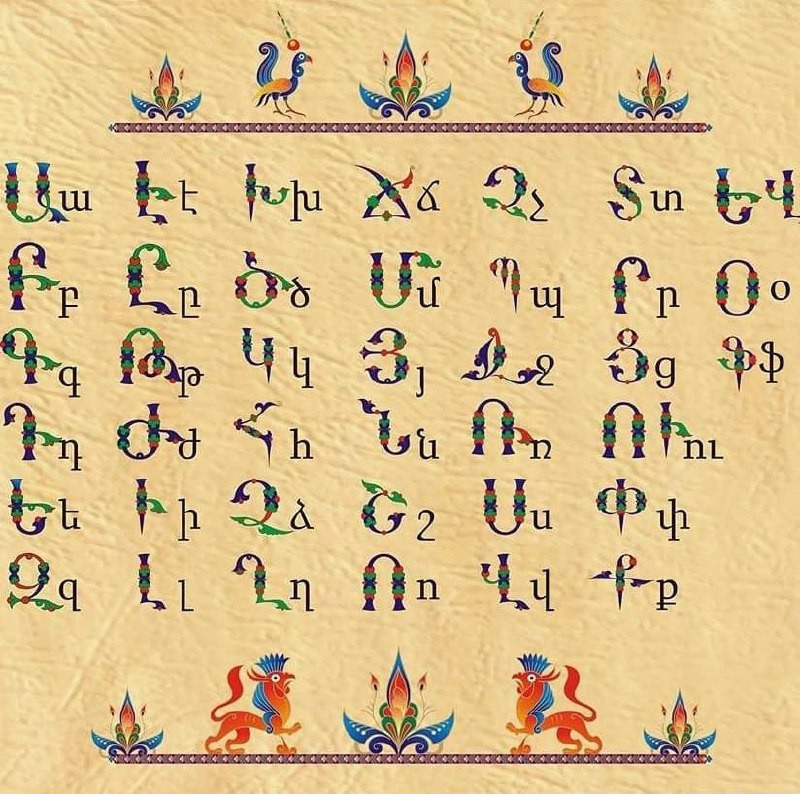 Աա Էէ Խխ Ճճ Չչ Տտ ԵՎ
Բբ Ըը Ծծ Մմ Պպ Րր Օօ
Գգ Թթ Կկ Յյ Ջջ Ցց Ֆֆ
Դդ Ժժ Հհ Նն Ռռ ՈՒու
Եե Իի Ձձ Շշ Սս Փփ
Զզ Լլ Ղղ Ոո Վվ Քք